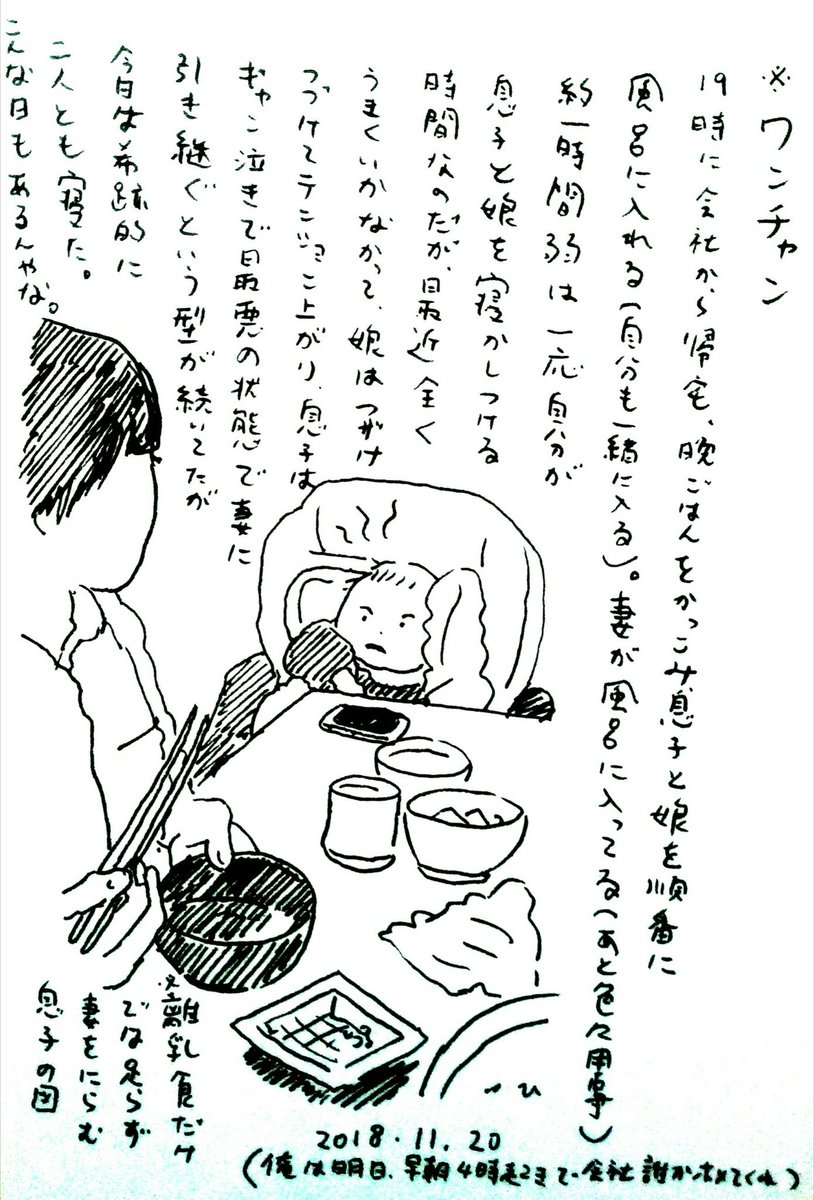 ※ワンチャン
19時に会社から帰宅、晩ごはんをかっこみ息子と娘を順番に
風呂に入れる(自分も一緒に入る)。妻が風呂に入ってる(あと色々用事)
約一時間弱は一応自分が
息子と娘を寝かしつける
時間なのだが、最近全く
うまくいかなかって、娘はつづけ
つづけてテンション上がり、息子は
ギャン泣きで最悪の状態で妻に
引き継ぐという型が続いてたが
今日は奇跡的に
二人とも寝た。
こんな日もあるんやな。
※離乳食だけ
では足らず
妻をにらむ
息子の図
2018.11.20
(俺は明日、早朝4時起きで会社誰かホメてくれ)